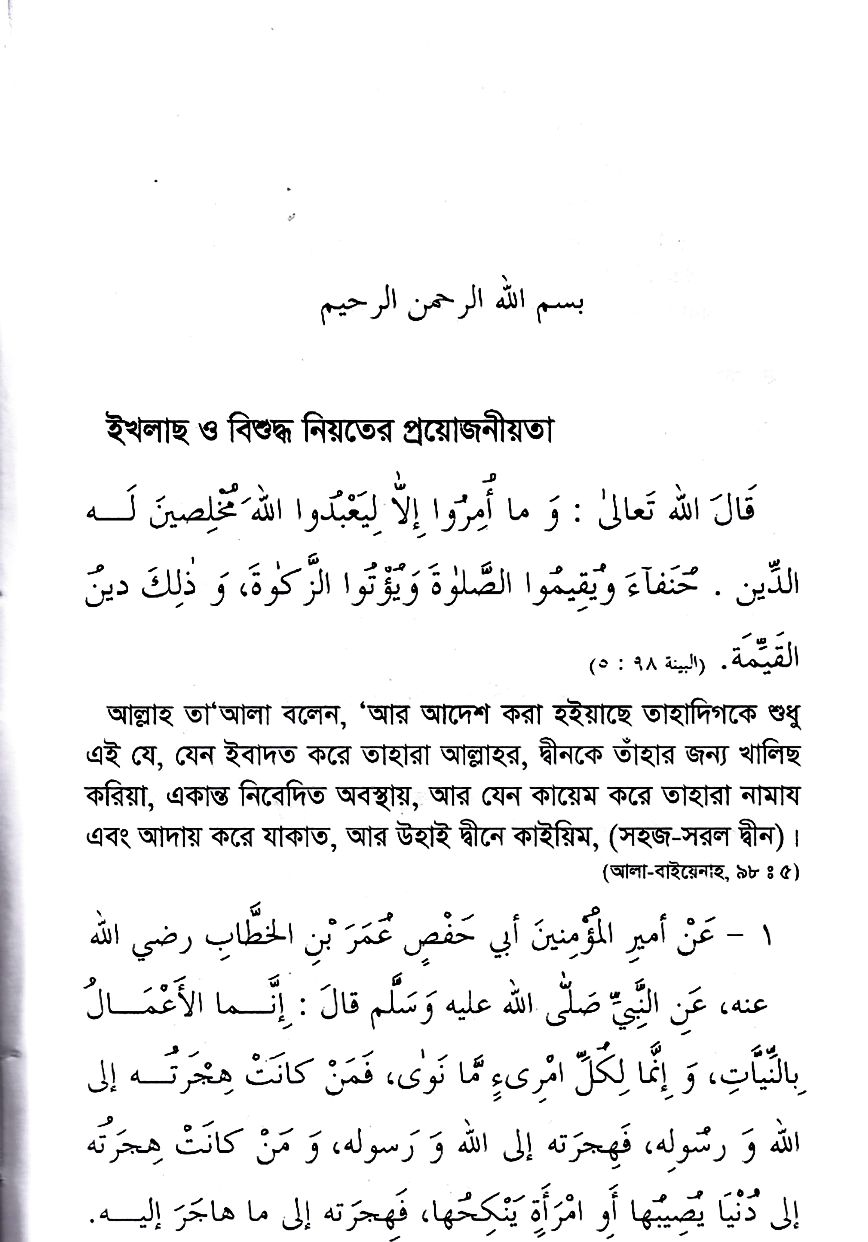 بسم الله الرحمن الرحيم
ইখলাছ ও বিশুদ্ধ নিয়তের প্রয়োজনীয়তা
قَالَ الله تَعالىٰ : وَ ما أُمِرُوا إِلاَّ لِيَعْبُدُوا اللهَ مُخْلِصينَ لَـــه
الدِّين . حُنَفآءَ ويُقِيمُوا الصَّلوٰةَ وَيُؤْتُوا الزَّكوٰةَ، وَ ذٰلِكَ دينُ
القَيِّمَة. (البينة ٩٨ : ٥)
আল্লাহ তা‘আলা বলেন, ‘আর আদেশ করা হইয়াছে তাহাদিগকে শুধু
এই যে, যেন ইবাদত করে তাহারা আল্লাহর, দ্বীনকে তাঁহার জন্য খালিছ
করিয়া, একান্ত নিবেদিত অবস্থায়, আর যেন কায়েম করে তাহারা নামায
এবং আদায় করে যাকাত, আর উহাই দ্বীনে কাইয়িম, (সহজ-সরল দ্বীন) ।
(আলা-বাইয়েনাহ, ৯৮ ঃ ৫)
١ – عَنْ أميرِ المُؤْمِنينَ أبي حَفْصٍ عُمَرَ بْنِ الخطَّابِ رضي الله
عنه، عَنِ النَّبِيِّ صَلَّى الله عليه وَسَلَّم قالَ : إِنَّـــما الأَعْمَـــالُ
بِالنِّيَّاتِ، وَ إِنَّما لِكُلِّ امْرِىءٍ مَّا نَوٰى، فَمَنْ كانَتْ هِجْرَتُـــه إلى
الله وَ رسُولِه، فَهِجرَته إلى الله وَ رَسوله، وَ مَنْ كانَتْ هِجرَتُه
إلى دُنْيَا يُصِيبُها أو امْرَأَةٍ يَنْكِحُها، فَهِجرَته إلى ما هاجَرَ إليـــه.